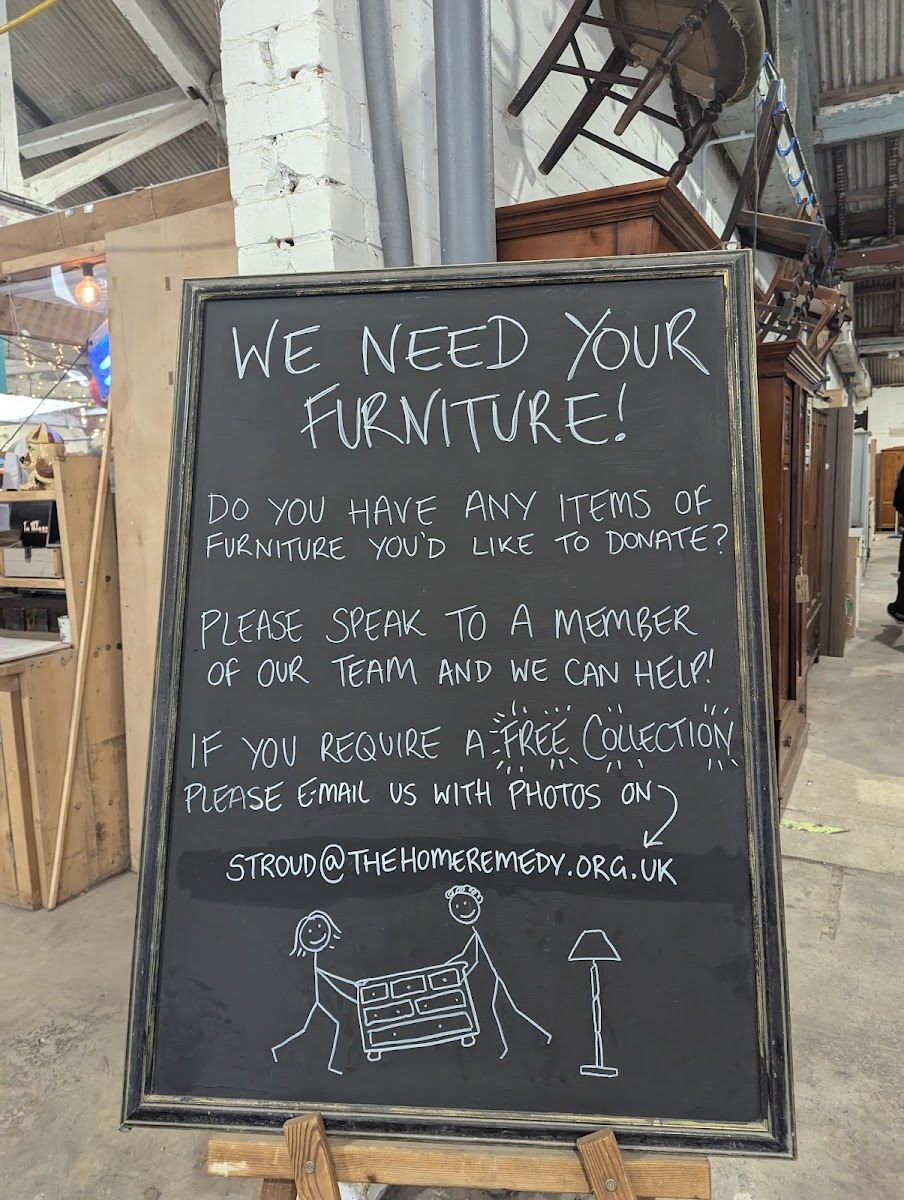 WE NEED YOUR
FURNITURE!
DO YOU HAVE ANY ITEMS OF
FURNITURE YOU'D LIKE TO DONATE?
PLEASE SPEAK TO A MEMBER
OF OUR TEAM AND WE CAN HELP!
IF YOU REQUIRE A FREE COLLECTION
PLEASE EMAIL US WITH PHOTOS ON
STROUD@THEHOMEREMEDY.ORG.UK